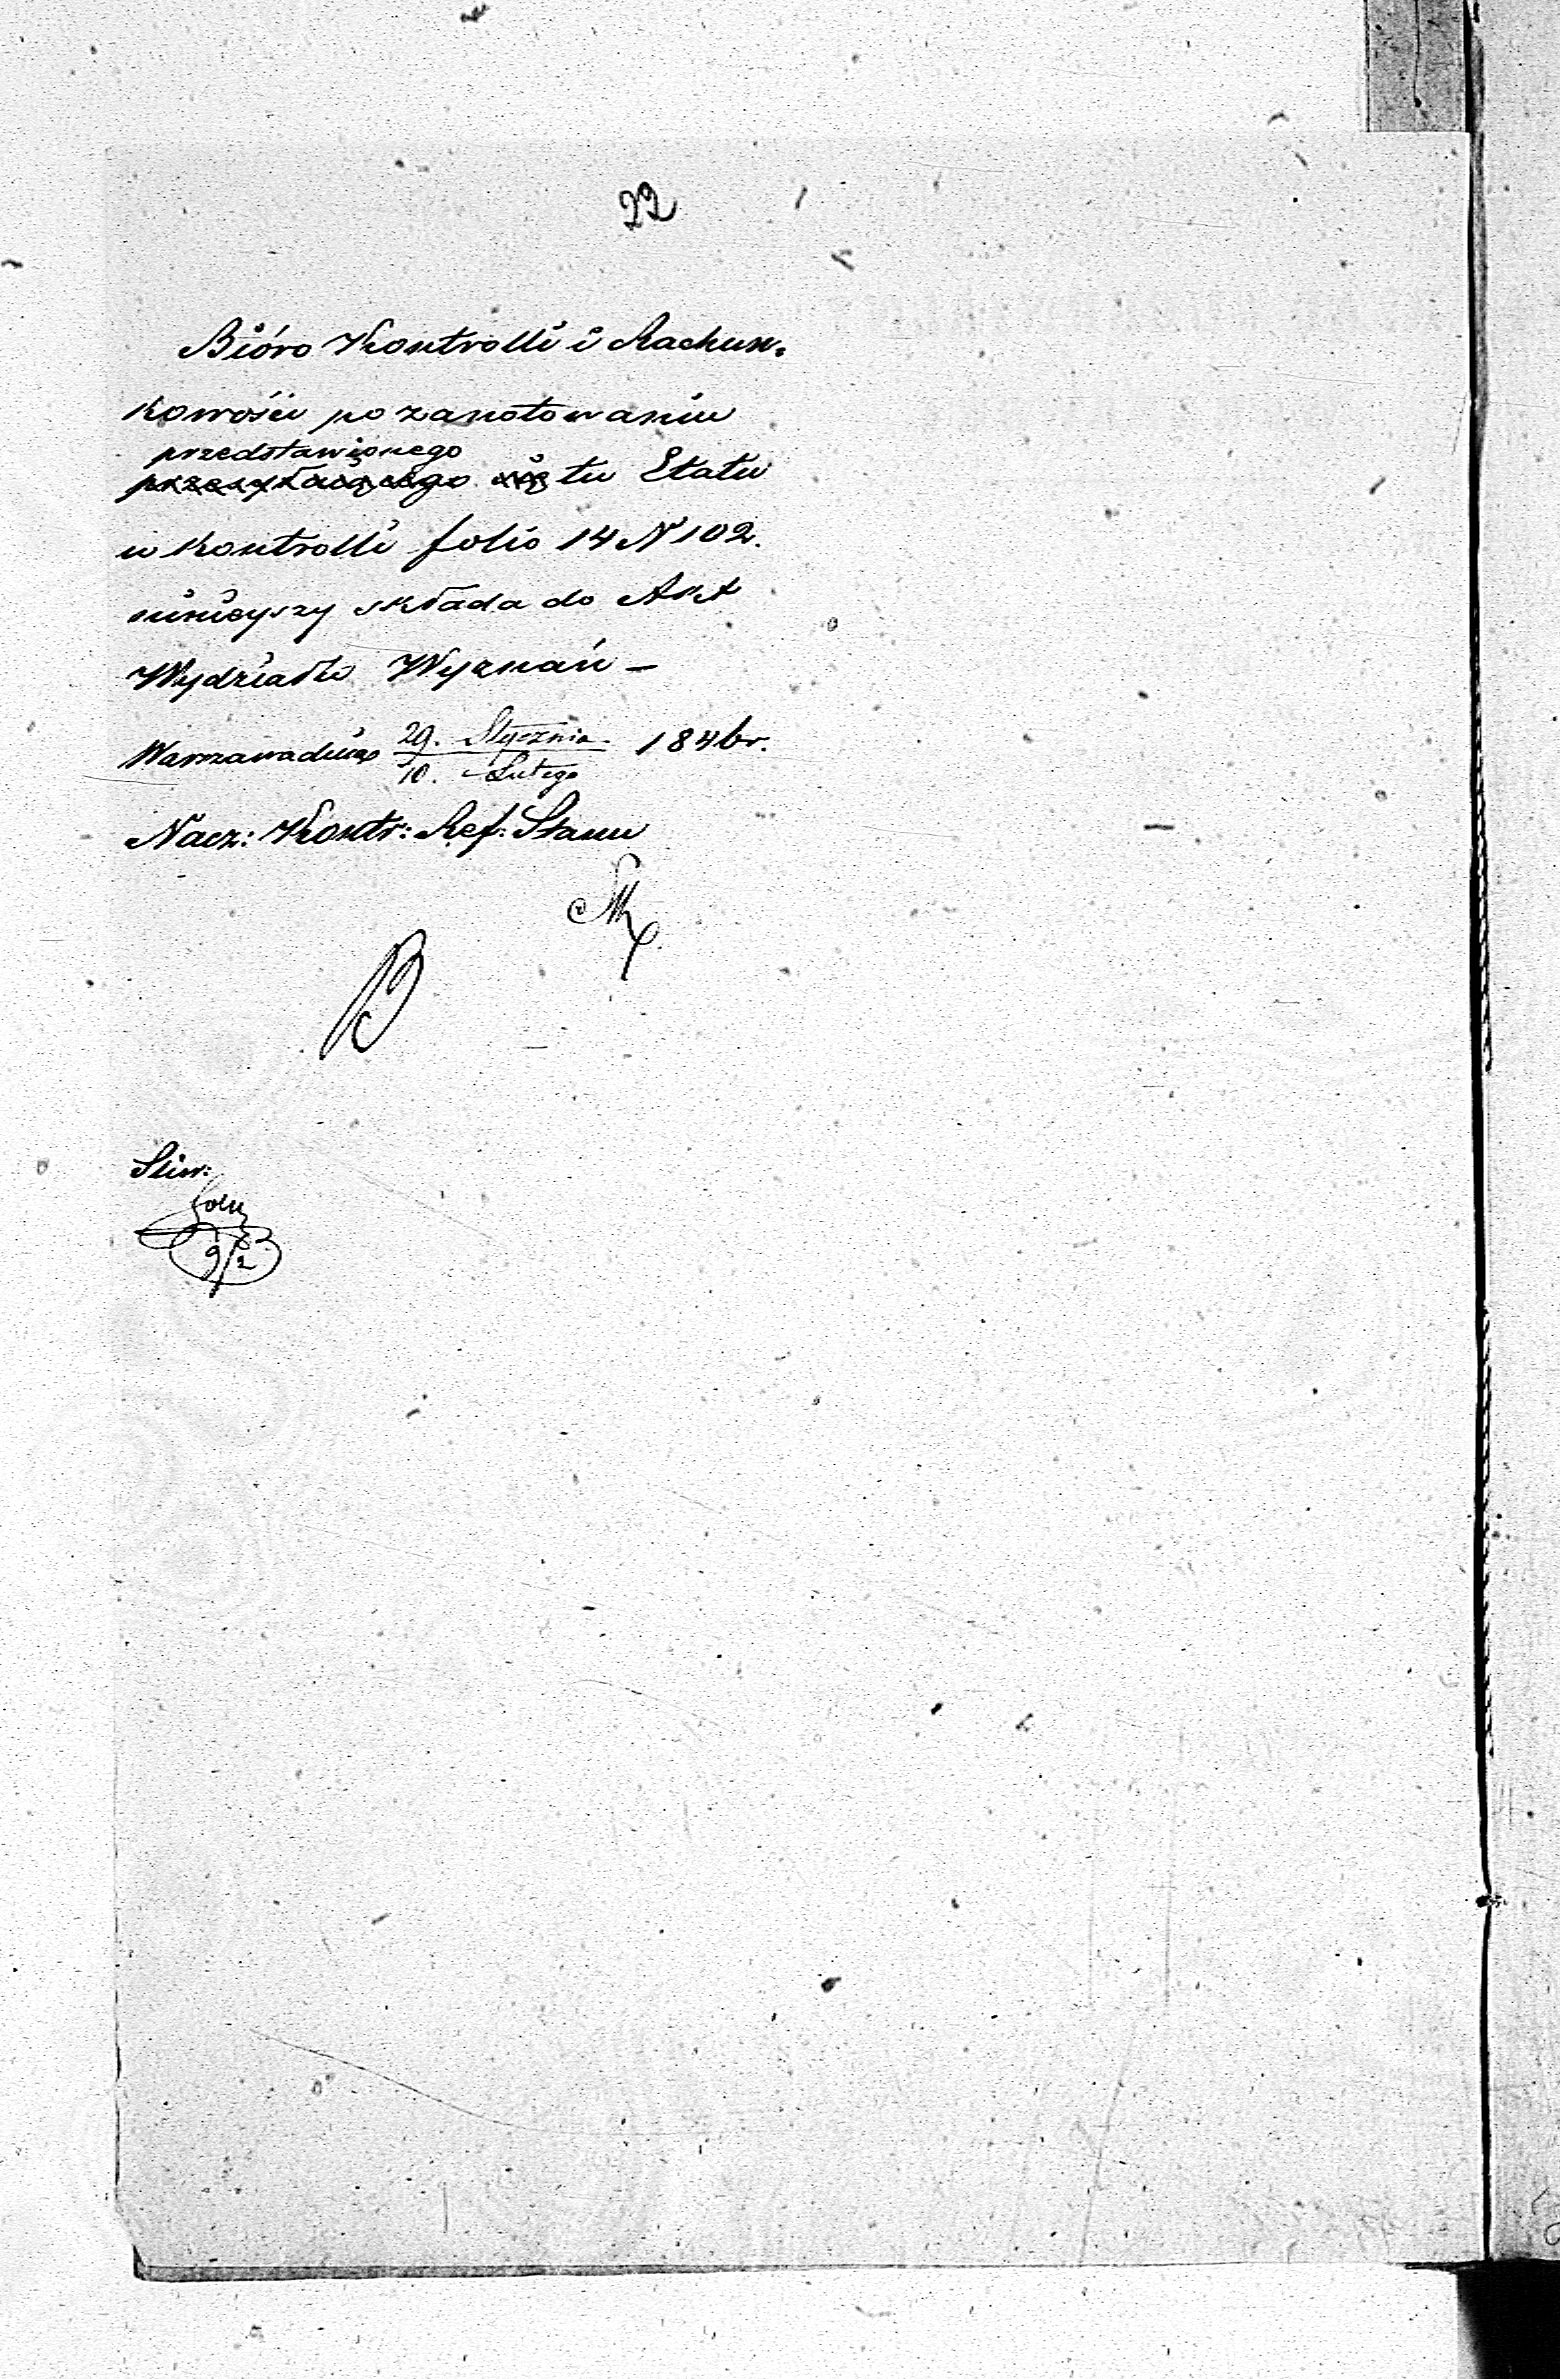 22
Bióro Kontrolli i Rachun-
kowości po zanotowaniu
przedstawionego
przesyłaiącego się tu Etatu
w Kontrolli folio 14 N 102.
ninieyszy składa do Akt
Wydziału Wyznań —
Warszawa dnia 29. Stycznia 1846 r.
10. Lutego
Nacz: Kontr: Ref: Stanu
Sliw:
9/2